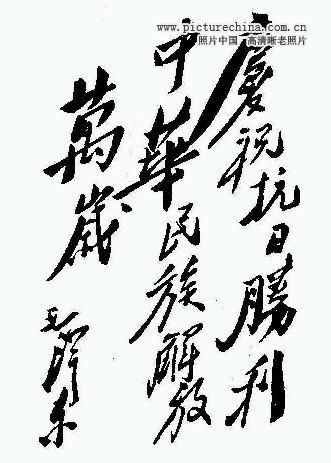 www.picturechina.com.cn
照片中国－高清晰老照片
慶祝抗日勝利
中華民族解放
萬歲
毛澤东